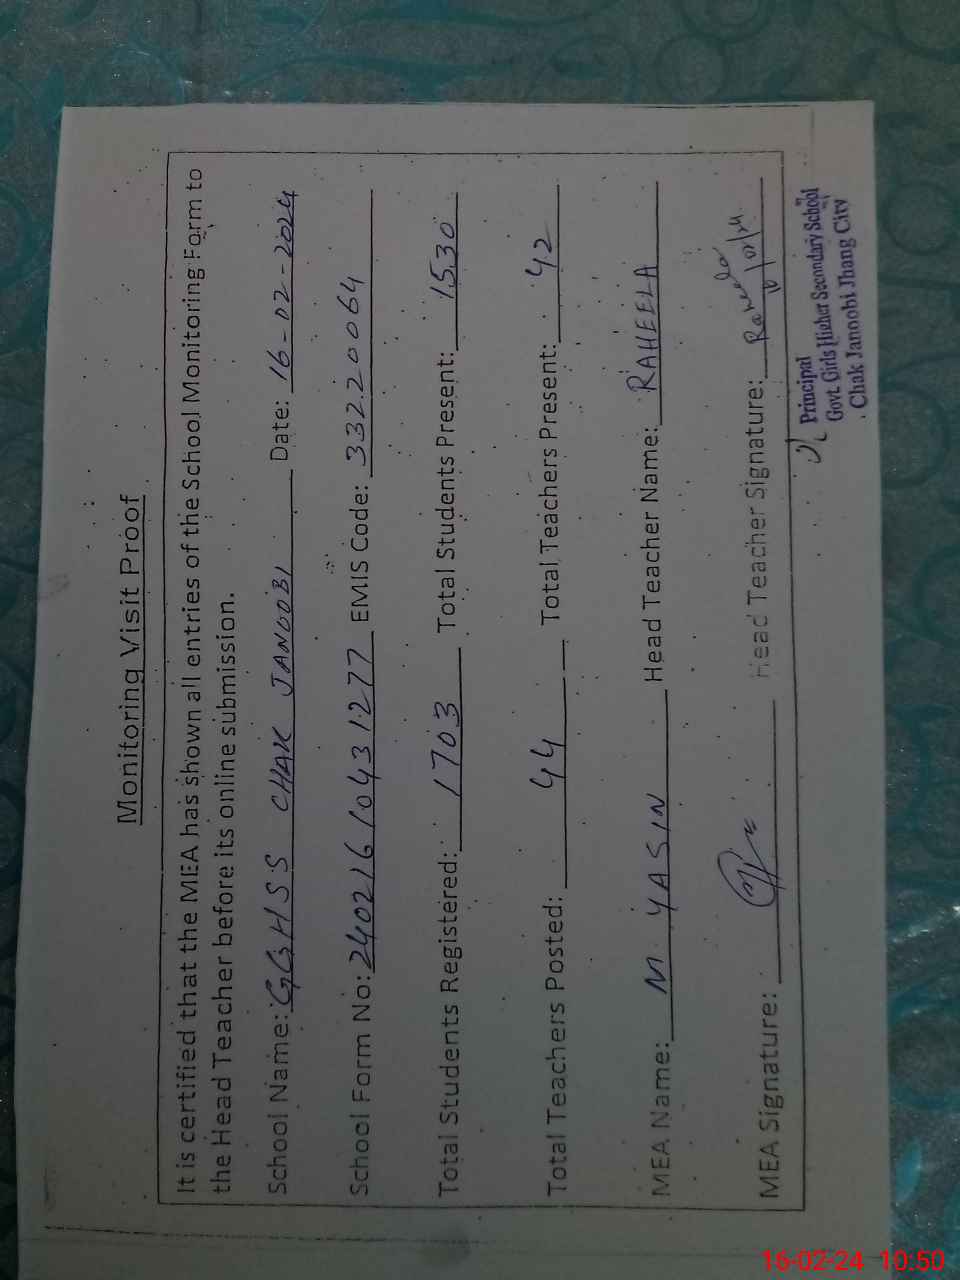 Monitoring Visit Proof
It is certified that the MEA has shown all entries of the School Monitoring Form to
the Head Teacher before its online submission.
School Name: GGHSS CHAK JANOOBI Date: 16-02-2024
School Form No: 2402161043 1277 EMIS Code: 33220064
Total Students Registered: 1703 Total Students Present: 1530
Total Teachers Posted: 44 Total Teachers Present: 42
MEA Name: M YASIN Head Teacher Name: RAHEELA
MEA Signature: Head Teacher Signature: Raheela
Principal
Govt. Girls Higher Secondary School
Chak Janoobi Jhang City
16-02-24 10:50